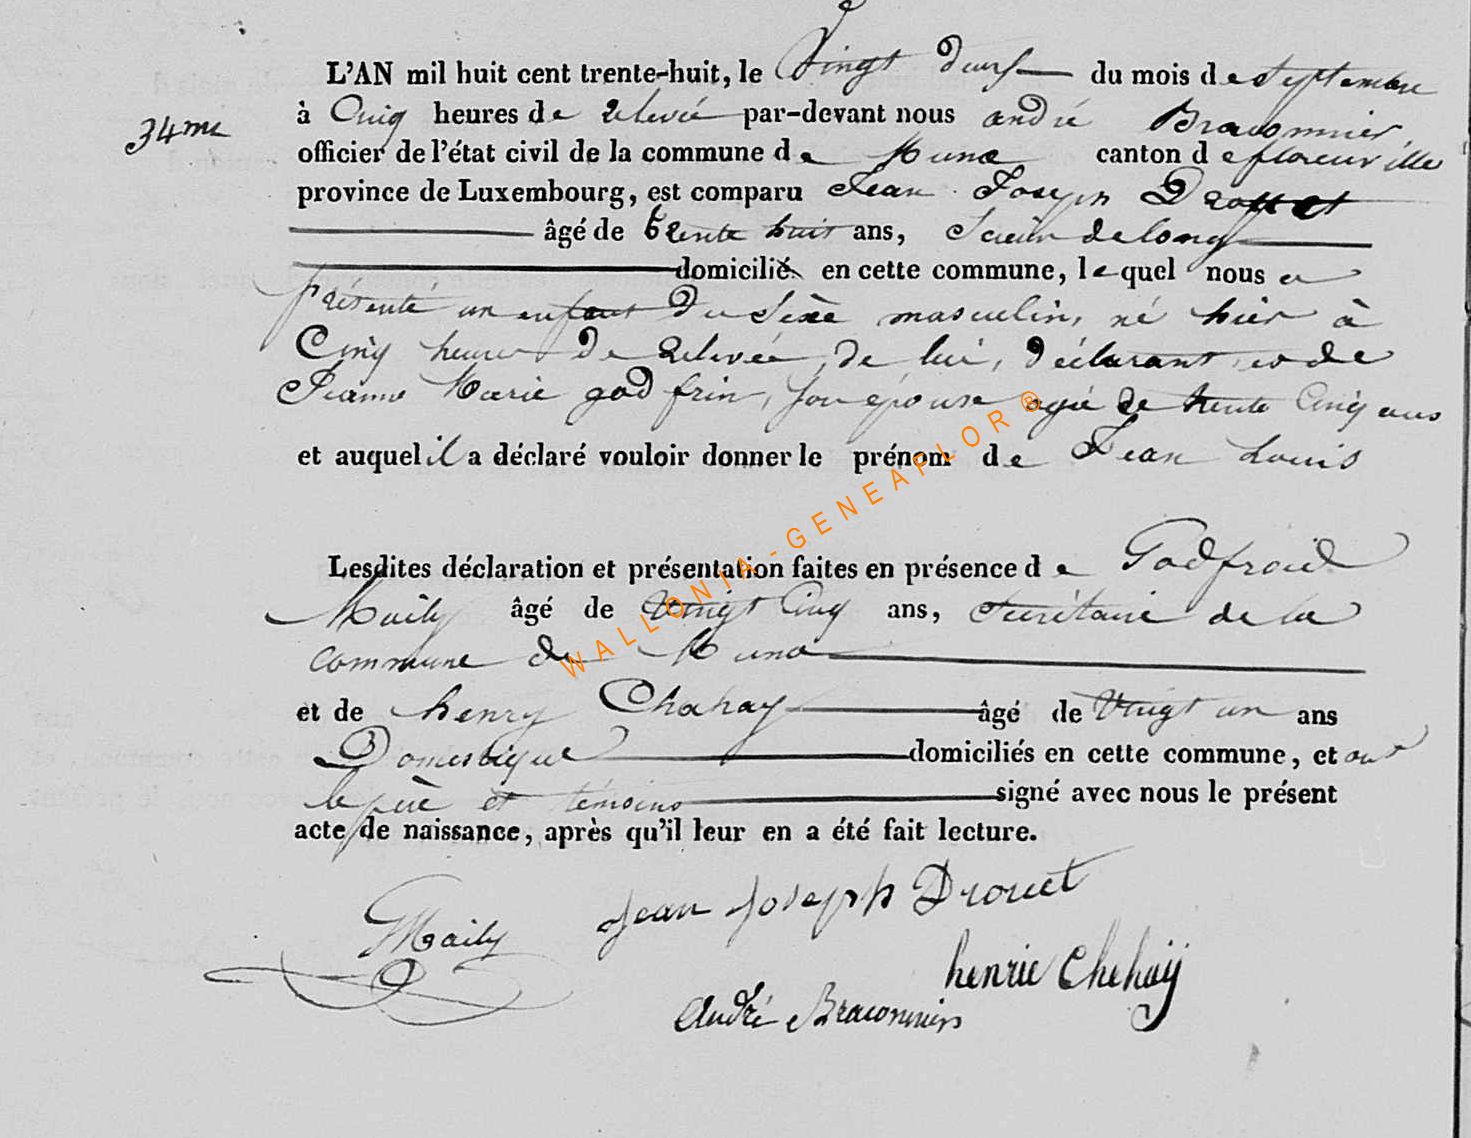 L'AN mil huit cent trente-huit, le Vingt Deux du mois de septembre
34me
à Cinq heures de relevée par-devant nous andré Braconnier,
officier de l'état civil de la commune de Muno canton de florenville
province de Luxembourg, est comparu Jean Joseph Drouet
âgé de trente huit ans, Scieur de long
domicilié en cette commune, lequel nous a
présenté un enfant Du Sexe masculin, né hier à
Cinq heures De relevée, De lui, Déclarant et de
Jeanne Marie godfrin, son épouse agée de trente Cinq ans
et auquel il a déclaré vouloir donner le prénom de Jean Louis
Lesdites déclaration et présentation faites en présence de Godfroid
Maily âgé de Vingt Cinq ans, Secrétaire de la
commune de Muno
et de henry Chahay âgé de Vingt un ans
Domestique domiciliés en cette commune, et ont
le père et témoins signé avec nous le présent
acte de naissance, après qu'il leur en a été fait lecture.
Jean Joseph Drouet
GMaily
henrie Chehaij
André Braconnier
WALLONIA-GENEAFLOR®